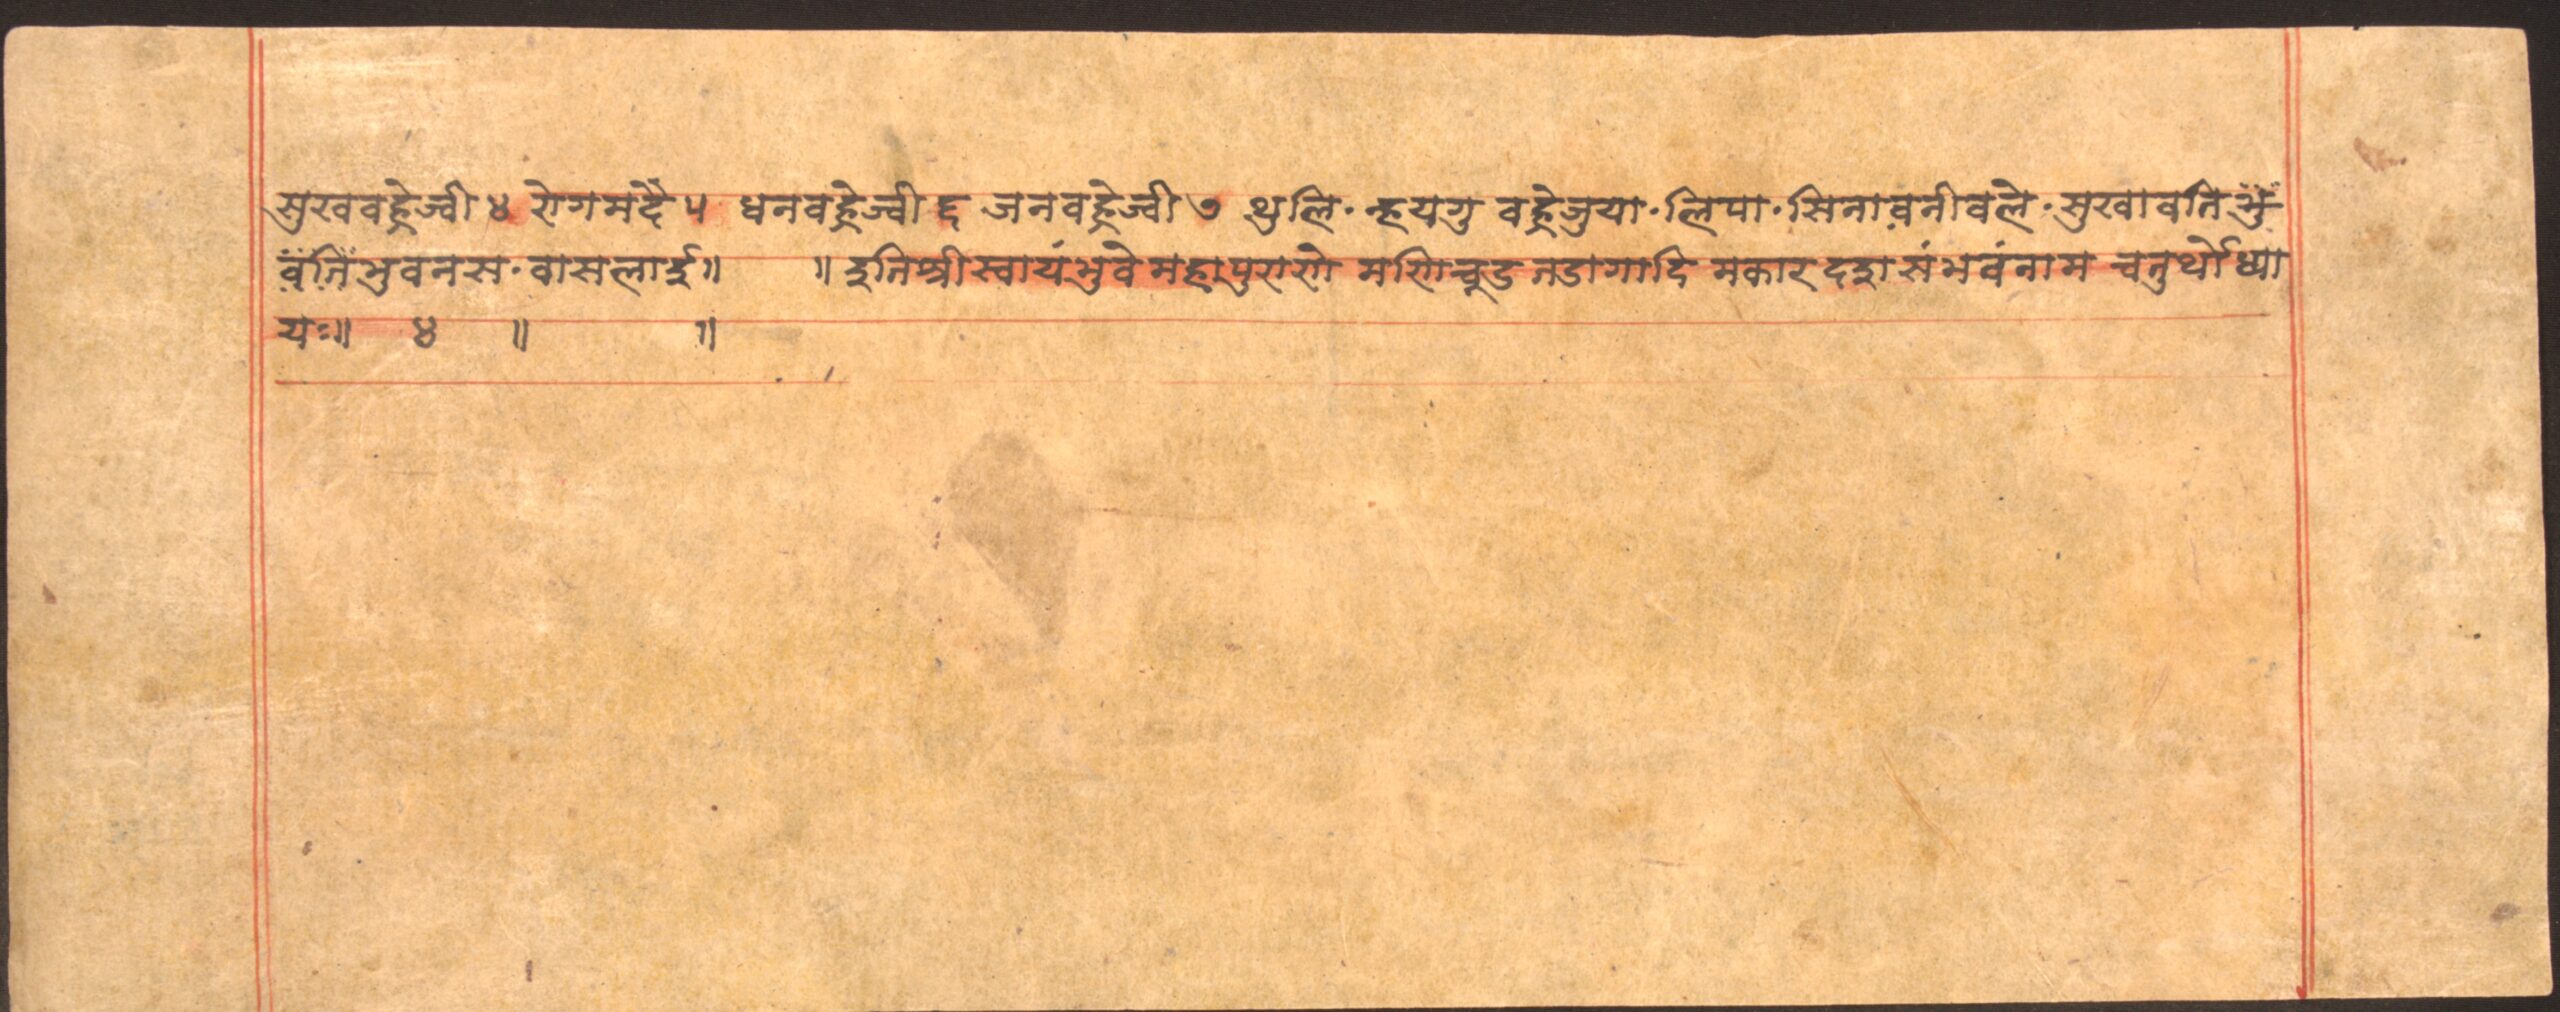 सुखवहेज्वी ४ रोगमदै ५ धनवहेज्वी ६ जनवहेज्वी ७ थुलि· न्हयगु वहेजुया· लिपा· सिनावनीवले· सुखावति भु
वंतिं भुवनस· वासलाई॥ ॥ इति श्रीस्वायंभुवे महापुराणे मणिचूड तडागादि मकारदश संभवंनाम चतुर्थोध्या
यः॥ ४ ॥ ॥